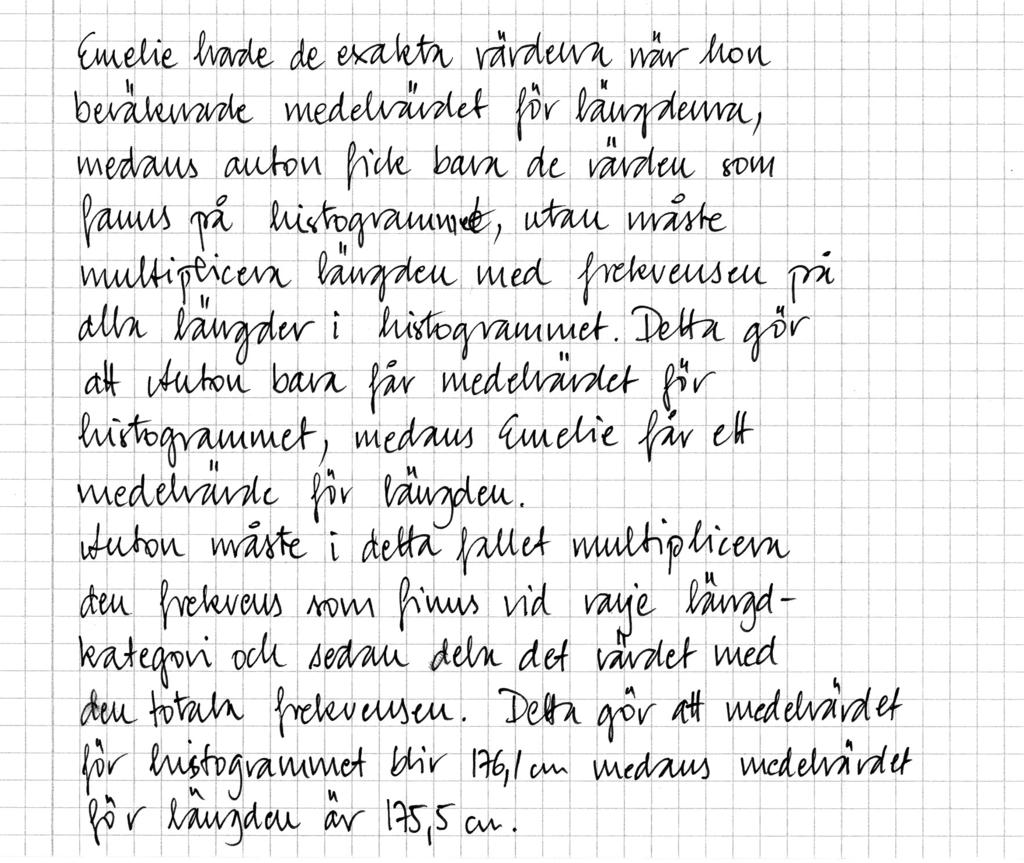 Emelie hade de exakta värdena när hon
beräknade medelvärdet för längderna,
medans anton fick bara de värden som
fanns på histogrammet, utan måste
multiplicera längden med frekvensen på
alla längder i histogrammet. Detta gör
att Anton bara får medelvärdet för
histogrammet, medans Emelie får ett
medelvärde för längden.
Anton måste i detta fallet multiplicera
den frekvens som finns vid varje längd-
kategori och sedan dela det värdet med
den totala frekvensen. Detta gör att medelvärdet
för histogrammet blir 176,1 cm medans medelvärdet
för längden är 175,5 cm.